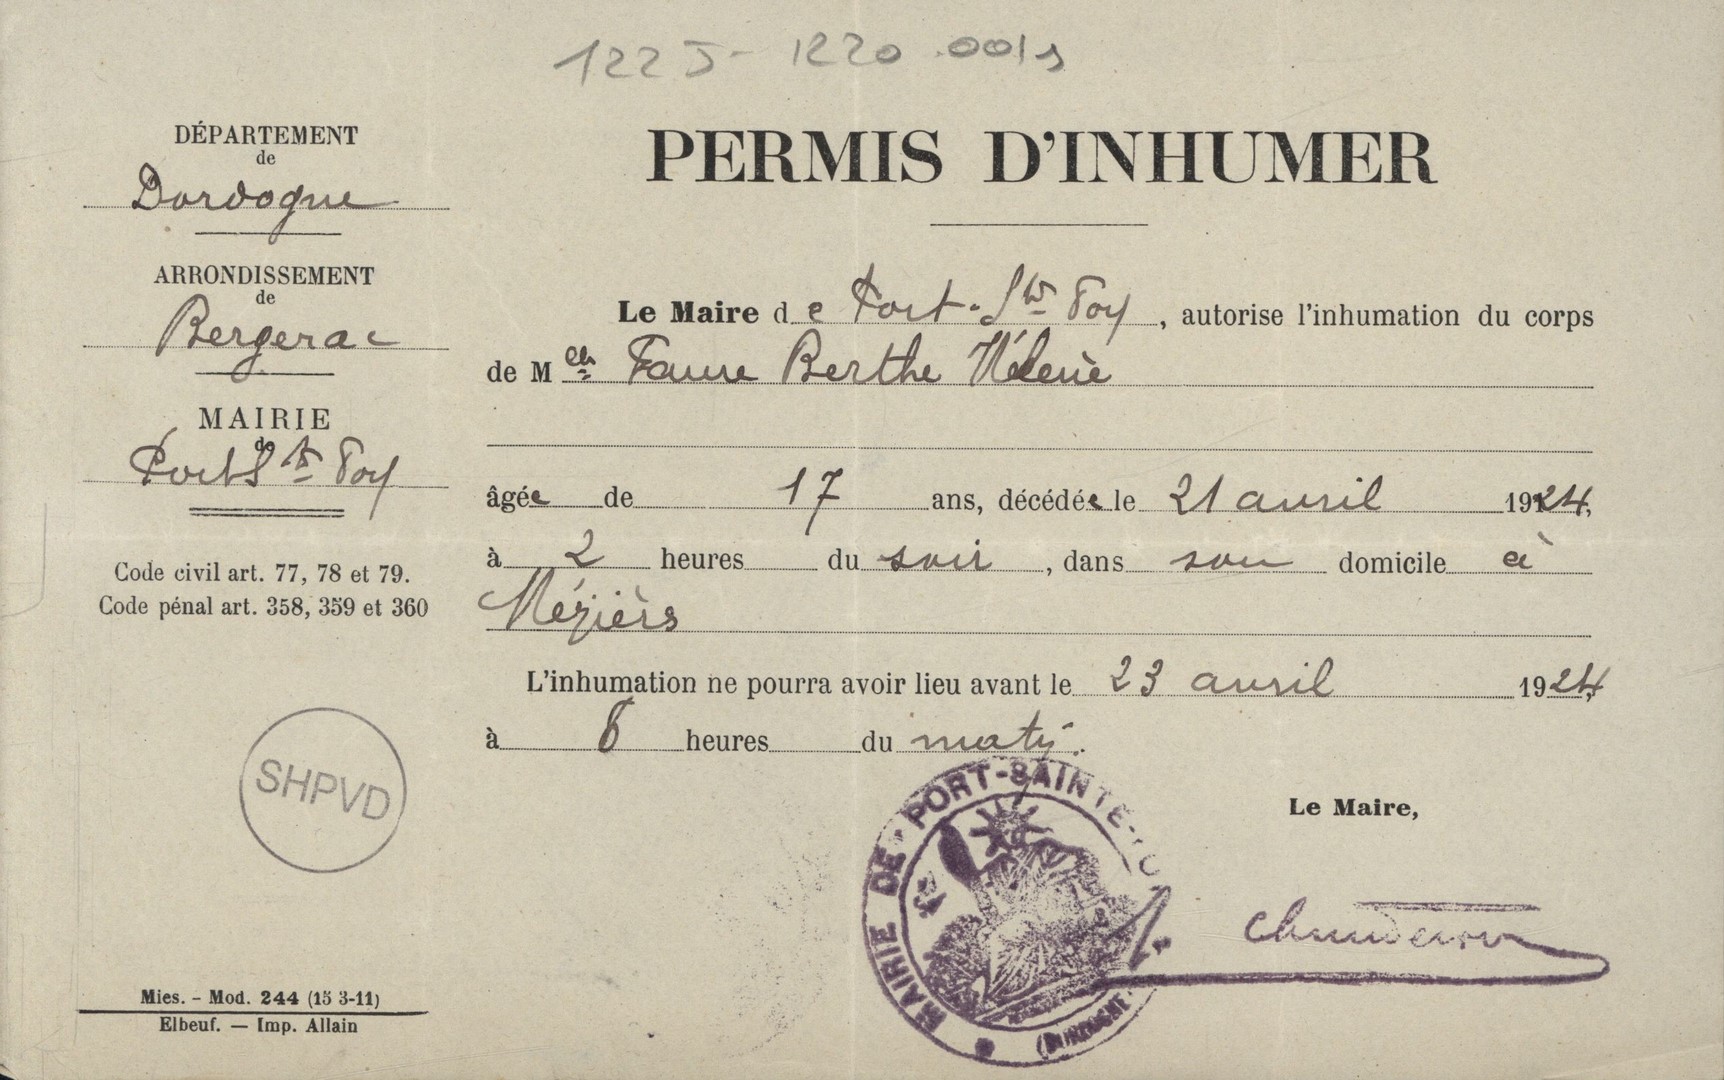 122 J - 1220 .001s
DÉPARTEMENT
de
Dordogne
ARRONDISSEMENT
de
Bergerac
MAIRIE
de
Port Ste Foy
Code civil art. 77, 78 et 79.
Code pénal art. 358, 359 et 360
SHPVD
Mies. - Mod. 244 (15 3-11)
Elbeuf. — Imp. Allain
PERMIS D'INHUMER
Le Maire de Port-Ste Foy, autorise l'inhumation du corps
de Melle Faure Berthe Hélène
âgée de 17 ans, décédée le 21 avril 1924,
à 2 heures du soir, dans son domicile à
Mézièrs
L'inhumation ne pourra avoir lieu avant le 23 avril 1924,
à 8 heures du matin.
MAIRIE DE PORT-SAINTE-
(DORDOGNE
Le Maire,